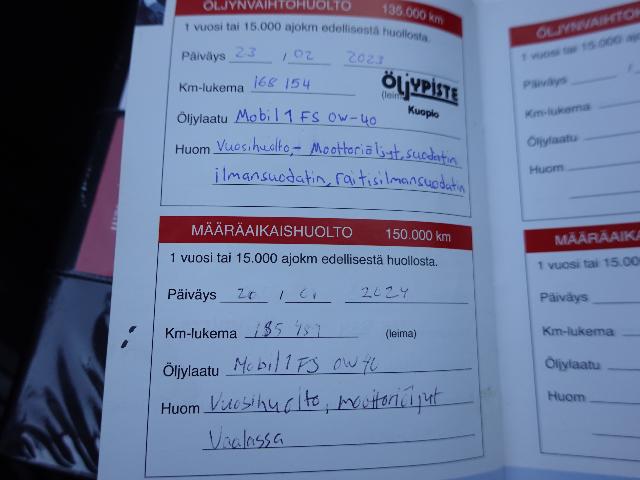 ÖLJYNVAIHTOHUOLTO 135.000 km
1 vuosi tai 15.000 ajokm edellisestä huollosta.
Päiväys 23 / 02 2023
Km-lukema 168 154 (leima)
ÖLJYPISTE
Kuopio
Öljylaatu Mobil 1 FS 0W-40
Huom Vuosihuolto,- Moottoriöljyt, suodatin
ilmansuodatin, raitisilmansuodatin
MÄÄRÄAIKAISHUOLTO 150.000 km
1 vuosi tai 15.000 ajokm edellisestä huollosta.
Päiväys 20 / 01 2024
Km-lukema (leima)
Öljylaatu Mobil 1 FS 0W40
Huom Vuosihuolto, moottoriöljyt
Vaalassa
ÖLJYNVAIHTO
1 vuosi tai 15.000
Päiväys /
Km-lukema
Öljylaatu
Huom
MÄÄRÄAIKA
1 vuosi tai 15.00
Päiväys
Km-lukema
Öljylaatu
Huom